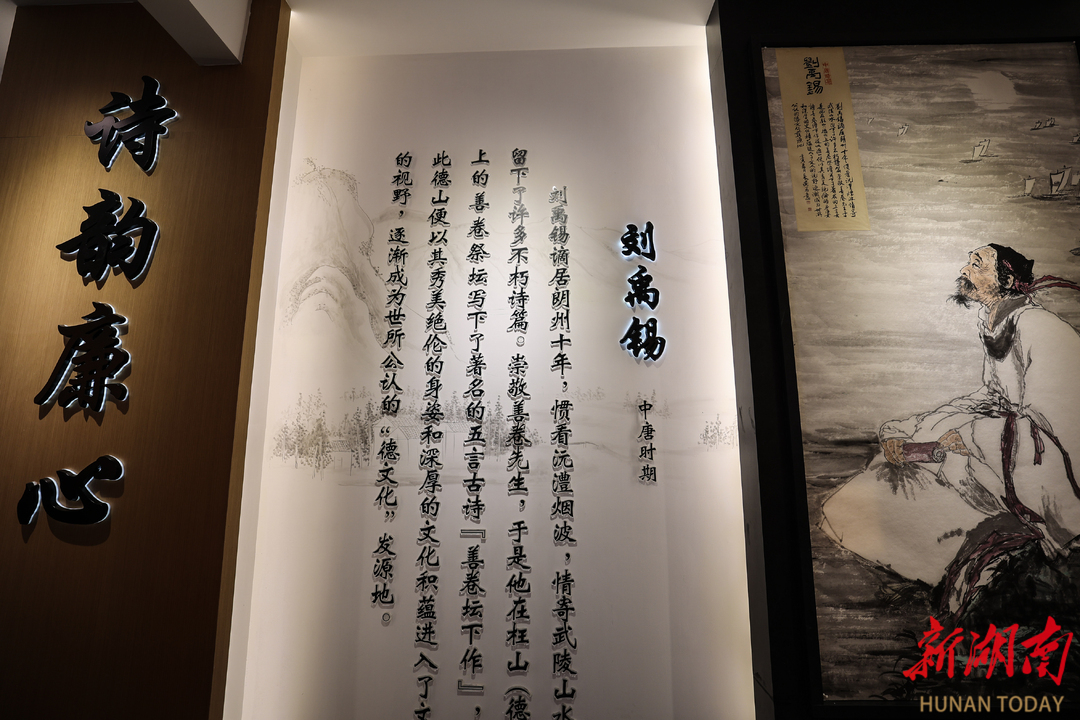 诗韵廉心
刘禹锡
中唐时期
刘禹锡谪居朗州十年，惯看沅澧烟波，情寄武陵山水
留下了许多不朽诗篇。崇敬善卷先生，于是他在枉山（德
上的善卷祭坛写下了著名的五言古诗『善卷坛下作』，
此德山便以其秀美绝伦的身姿和深厚的文化积蕴进入了文
的视野，逐渐成为世所公认的“德文化”发源地。
劉禹锡
新湖南
HUNAN TODAY